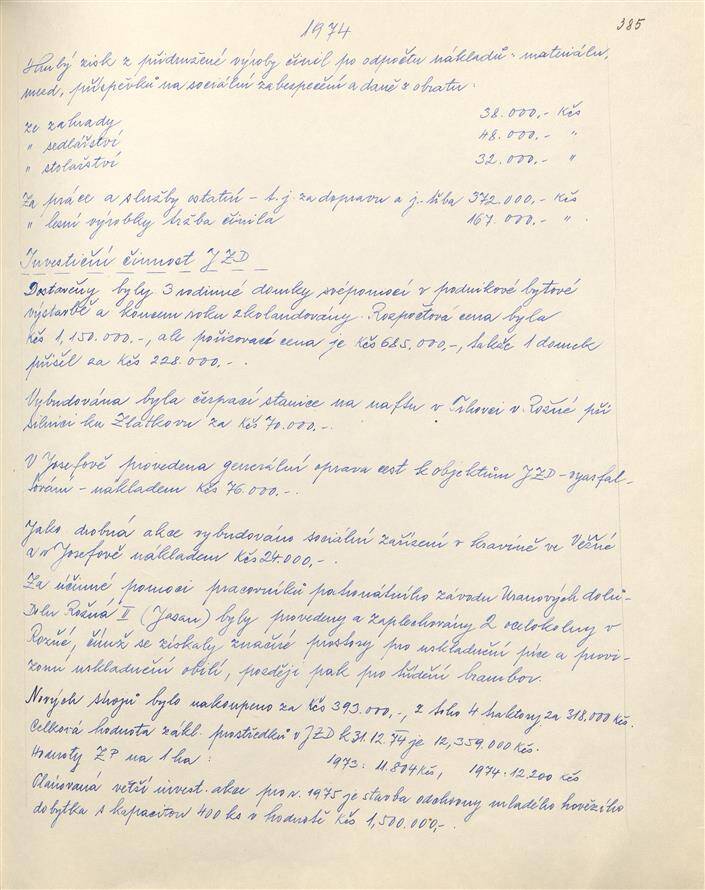 1974
385
Hrubý zisk z přidružené výroby činil po odpočtu nákladů - materiálu,
mezd, příspěvků na sociální zabezpečení a daně z obratu:
ze zahrady 38.000,- Kčs
" sedlářství 48.000,- "
" stolařství 32.000,- "
Za práce a služby ostatní - t.j. za dopravu a j. tržba 372.000,- Kčs
" lesní výrobky tržba činila 167.000,- " .
Investiční činnost JZD
Dostavěny byly 3 rodinné domky svépomocí v podnikové bytové
výstavbě a koncem roku zkolaudovány. Rozpočtová cena byla
Kčs 1,150.000.-, ale pořizovací cena je Kčs 685.000,-, takže 1 domek
přišel za Kčs 228.000,-.
Vybudována byla čerpací stanice na naftu v v Rožné při
silnici ku Zlátkovu za Kčs 70.000,-.
V Josefově provedena generální oprava cest k objektům JZD - vyasfal-
tování - nákladem Kčs 76.000.-.
Jako drobná akce vybudováno sociální zařízení v kravíně ve Věžné
a v Josefově nákladem Kčs 24.000,-.
Za účinné pomoci pracovníků patronátního závodu Uranových dolů -
Dolu Rožná II (Jasan) byly provedeny a zaplechovány 2 ocelokolny v
Rožné, čímž se získaly značné prostory pro uskladnění píce a provi-
zorní uskladnění obilí, později pak pro třídění brambor.
Nových strojů bylo nakoupeno za Kčs 393.000,-, z toho 4 traktory za 318.000 Kčs.
Celková hodnota zákl. prostředků v JZD k 31.12.74 je 12,359.000 Kčs.
Hodnoty ZP na 1 ha: 1973: 11.804 Kčs, 1974: 12.200 Kčs
Plánovaná větší invest. akce pro r. 1975 je stavba odchovny mladého hovězího
dobytka s kapacitou 400 ks v hodnotě Kčs 1,500.000,-.